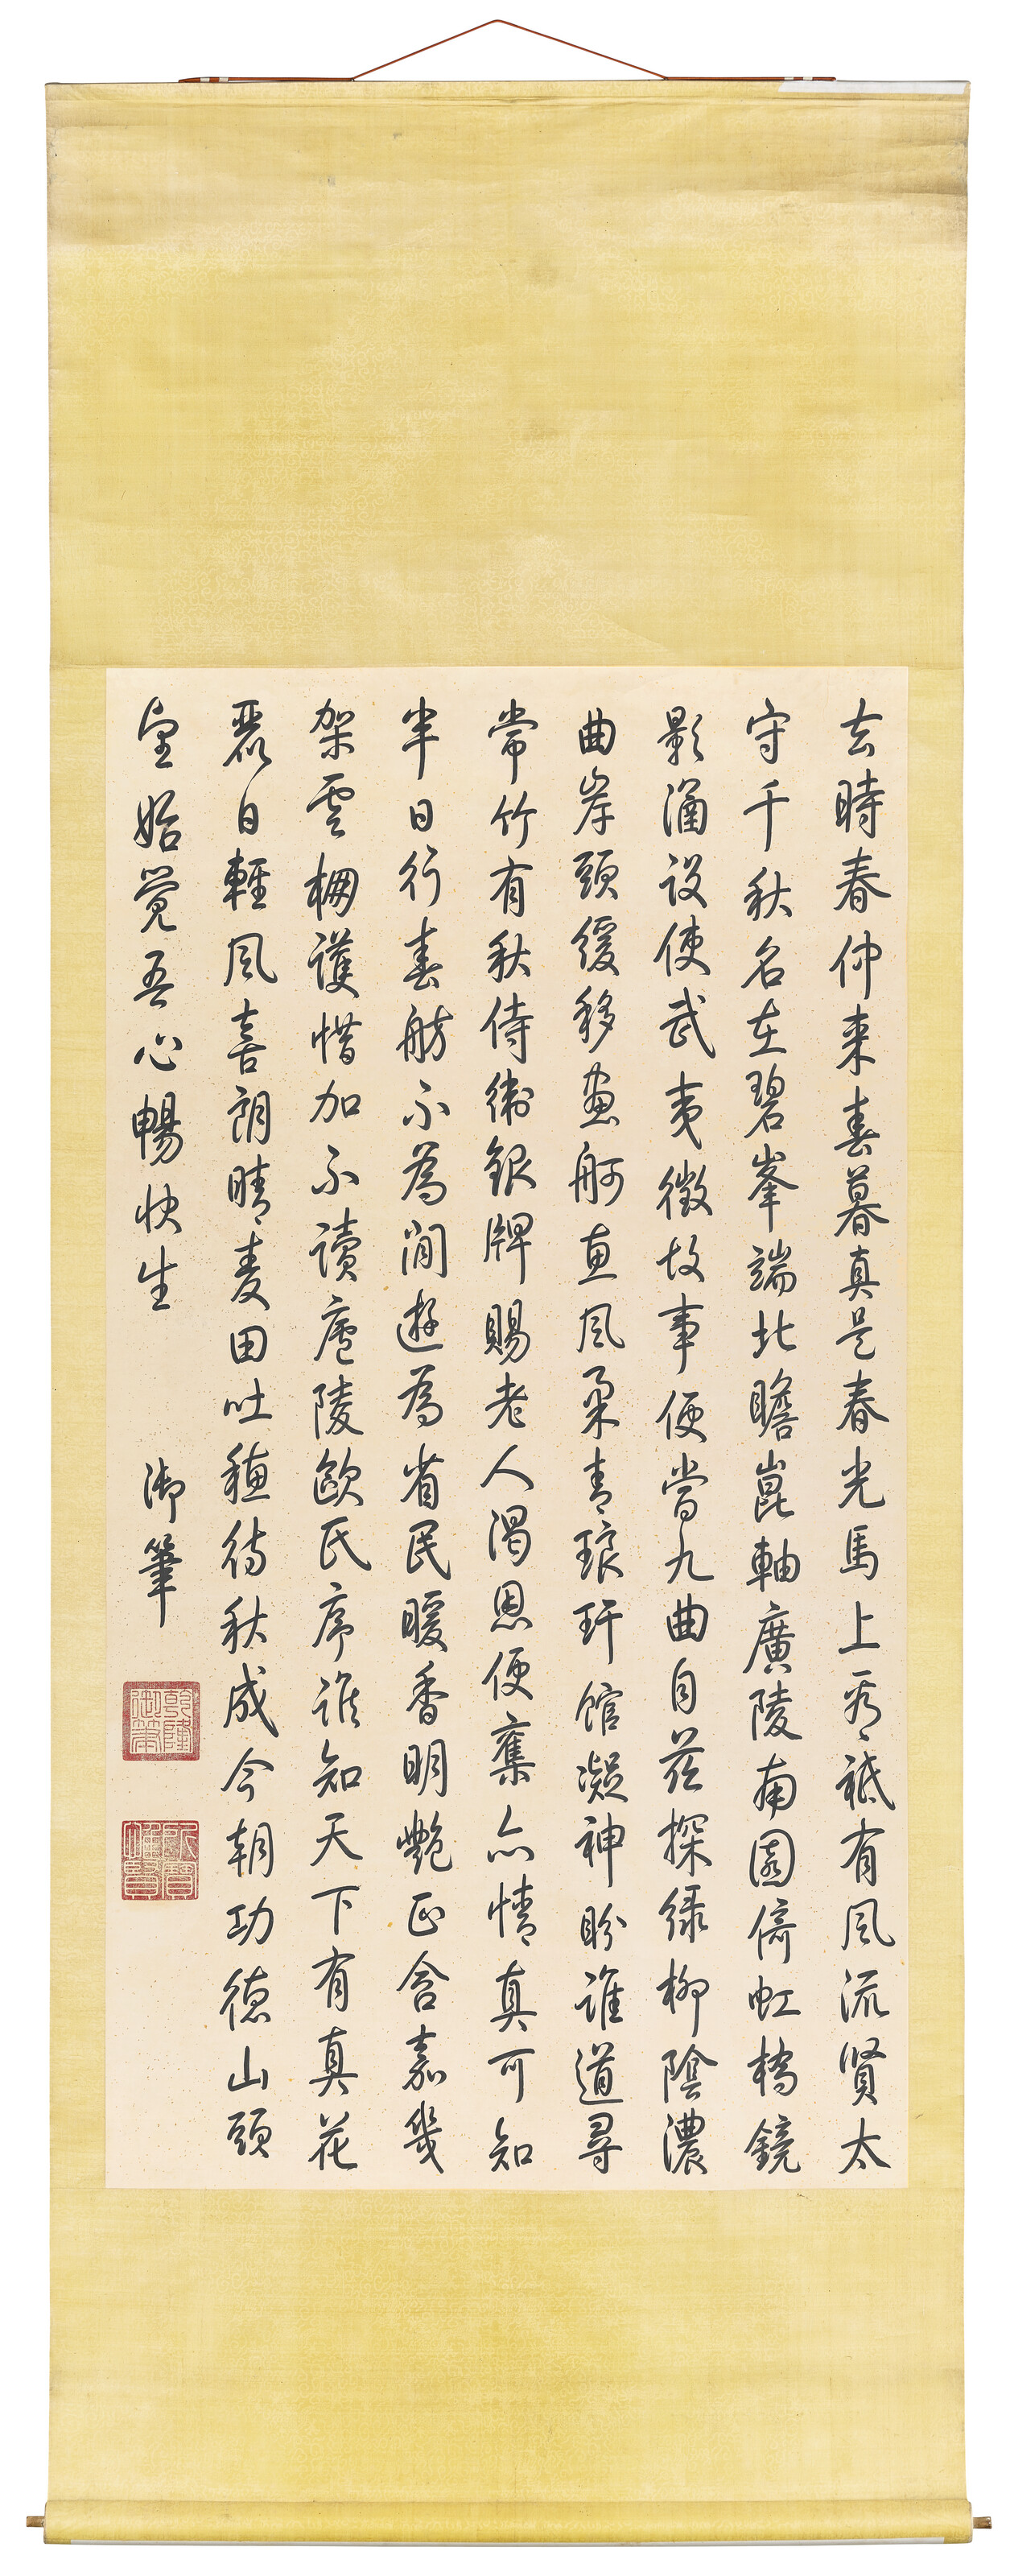 去時春仲来春暮真是春光馬上看祗有風流賢太
守千秋名在碧峯端北瞻崑軸廣陵南園倚虹橋鏡
影涵設使武夷徴故事便當九曲自茲探綠柳陰濃
曲岸頭緩移畫舸惠風柔青琅玕館凝神盼誰道尋
常竹有秋侍衛銀牌賜老人渴恩便奮亦情真可知
半日行春舫不為閒遊為省民暖香明艷正含嘉幾
架雲棚護惜加不讀廬陵歐氏序誰知天下有真花
麗日輕風喜朗晴麦田吐穗待秋成今朝功德山頭
望始覺吾心暢快生
御筆
乾隆御筆
所寶惟賢